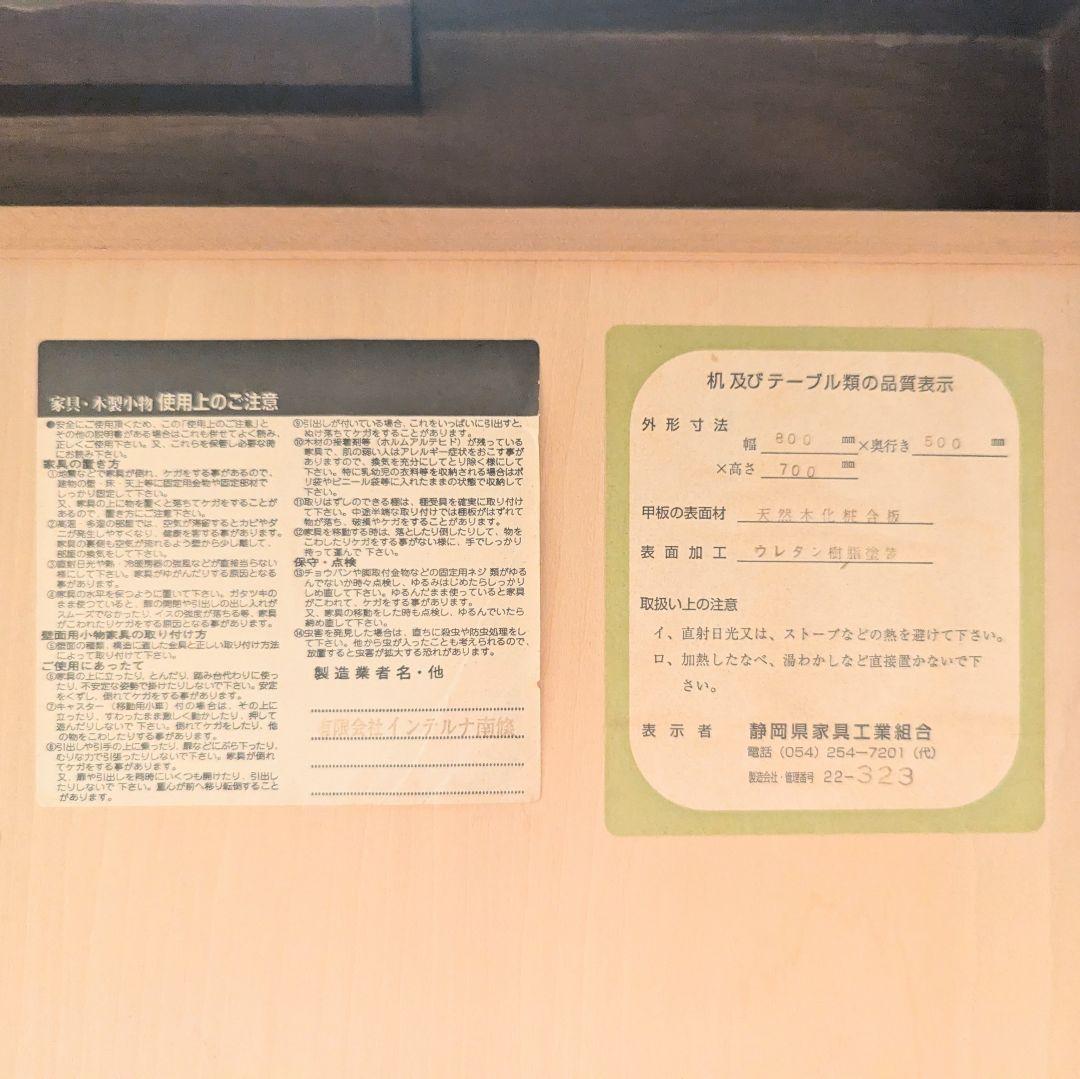 家具・木製小物 使用上のご注意
●安全にご使用頂くため、この「使用上のご注意」と
その他の説明書がある場合はこれも併せてよく読み、
正しくご使用下さい。又、これらを保管し必要な時
にお読み下さい。
家具の置き方
①地震などで家具が倒れ、ケガをする事があるので、
建物の壁・床・天上等に固定用金物や固定部材で
しっかり固定して下さい。
又、家具の上に物を置くと落ちてケガをすることが
あるので、置き方にご注意下さい。
②高温・多湿の部屋では、空気が滞留するとカビやダ
ニが発生しやすくなり、健康を害する事があります。
家具の裏側も空気が流れるよう壁から少し離して、
部屋の換気をして下さい。
③直射日光や熱・冷暖房器の強風などが直接当らない
様にして下さい。家具がゆがんだりする原因となる
事があります。
④家具の水平を保つように置いて下さい。ガタツキの
まま使つていると、扉の開閉や引出しの出し入れが
スムーズでなかったり、イスの強度が落ちる等、家具
がこわれたりケガをする原因となる事があります。
壁面用小物家具の取り付け方
⑤壁面の種類、構造に適した金具と正しい取り付け方法
によって取り付けて下さい。
ご使用にあたって
⑥家具の上に立ったり、とんだり、踏み台代わりに使っ
たり、不安定な姿勢で掛けたりしないで下さい。安定
をくずし、倒れてケガをする事があります。
⑦キャスター（移動用小車）付の場合は、その上に
立ったり、すわったまま激しく動かしたり、押して
遊んだりしないで下さい。倒れてケガをしたり、他
の物をこわしたりする事があります。
⑧引出しや引手の上に乗ったり、扉などにぶら下ったり、
むりな力で引張ったりしないで下さい。家具が倒れ
てケガをする事があります。
又、扉や引出しを同時にいくつも開けたり、引出し
たりしないで下さい。重心が前へ移り転倒すること
があります。
⑨引出しが付いている場合、これをいっぱいに引出すと、
ぬけ落ちてケガをすることがあります。
⑩木材の接着剤等（ホルムアルデヒド）が残っている
家具で、肌の弱い人はアレルギー症状をおこす事が
ありますので、換気を充分にしてとり除く様にして
下さい。特に乳幼児の衣料等を収納される場合はポ
リ袋やビニール袋等に入れたままの状態で収納して
下さい。
⑪取りはずしのできる棚は、棚受具を確実に取り付け
て下さい。中途半端な取り付けでは棚板がはずれて
物が落ち、破損やケガをすることがあります。
⑫家具を移動する時は、落としたり倒したりして、物を
こわしたりケガをする事がない様に、手でしっかり
持って運んで下さい。
保守・点検
⑬チョウバンや脚取付金物などの固定用ネジ類がゆる
んでないか時々点検し、ゆるみはじめたらしっかり
しめ直して下さい。ゆるんだまま使っていると家具
がこわれて、ケガをする事があります。
又、家具の移動をした時も点検し、ゆるんでいたら
締め直して下さい。
⑭虫害を発見した場合は、直ちに殺虫や防虫処理をし
て下さい。他から虫が入ったことも考えられるので、
放置すると虫害が拡大する恐れがあります。
製造業者名・他
有限会社インテルナ南條
机及びテーブル類の品質表示
外形寸法
幅 800 mm×奥行き 500 mm
×高さ 700 mm
甲板の表面材 天然木化粧合板
表面加工 ウレタン樹脂塗装
取扱い上の注意
イ、直射日光又は、ストーブなどの熱を避けて下さい。
ロ、加熱したなべ、湯わかしなど直接置かないで下
さい。
表示者 静岡県家具工業組合
電話（054）254-7201（代）
製造会社・管理番号 22-323